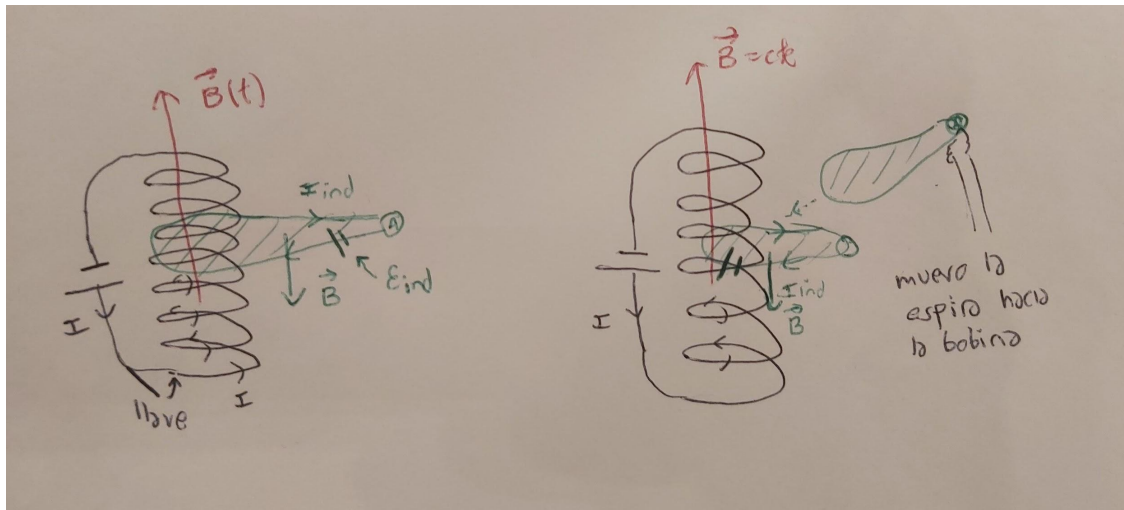 B⃗(t)
I ind
A
B⃗
ε ind
I
I
llave
B⃗ = cte
I
I ind
B⃗
muevo la
espira hacia
la bobina